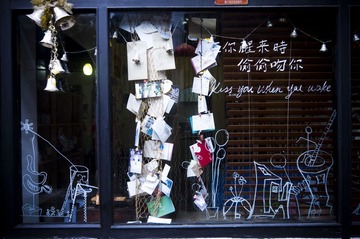 在你醒來時
偷偷吻你
Kiss you when you wake